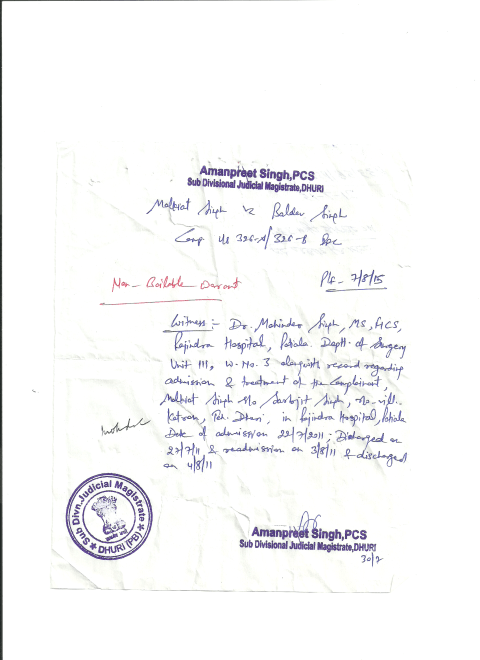 Amanpreet Singh,PCS
Sub Divisional Judicial Magistrate,DHURI
Malkiat Singh Vs Baldev Singh
Comp US 326-A/326-B IPC
Non-Bailable Warant
Plf- 7/8/15
Witness:- Dr. Mohinder Singh, MS, FICS,
Rajindra Hospital, Patiala. Deptt. of Surgery
Unit III, W. No. 3 alongwith record regarding
admission & treatment of the Complainant,
Malkiat Singh S/o Sarbjit Singh, r/o vill.
Katron, Teh. Dhuri, in Rajindra Hospital, Patiala
Date of admission 22/7/2011; Discharged on
27/7/11 & readmission on 3/8/11 & discharged
on 4/8/11
Sub Divn.Judicial Magistrate
DHURI (PB)
Amanpreet Singh,PCS
Sub Divisional Judicial Magistrate,DHURI
30/7